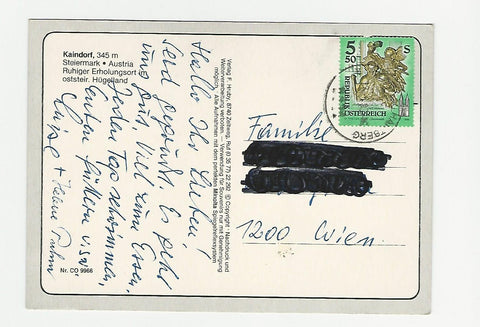 Kaindorf, 345 m
Steiermark • Austria
Ruhiger Erholungsort im
oststeir. Hügelland
Hallo Ihr Lieben!
Seid gegrüßt. Es geht
uns gut. Viel zum Essen,
jeden Tag schwimmen,
Enten füttern
Luise +
Nr. CO 9966
Verlag F. Hruby, 8740 Zeltweg, Ruf (0 35 77) 22 262 © Copyright Nachdruck und
Weiterverarbeitung verboten. — Verwendung für Souvenirs nur mit Genehmigung
möglich. Alle Aufnahmen mit dem perfekten Minolta Spiegelreflexsystem
5 50 S
REPUBLIK
ÖSTERREICH
BERG
Familie
1200 Wien.